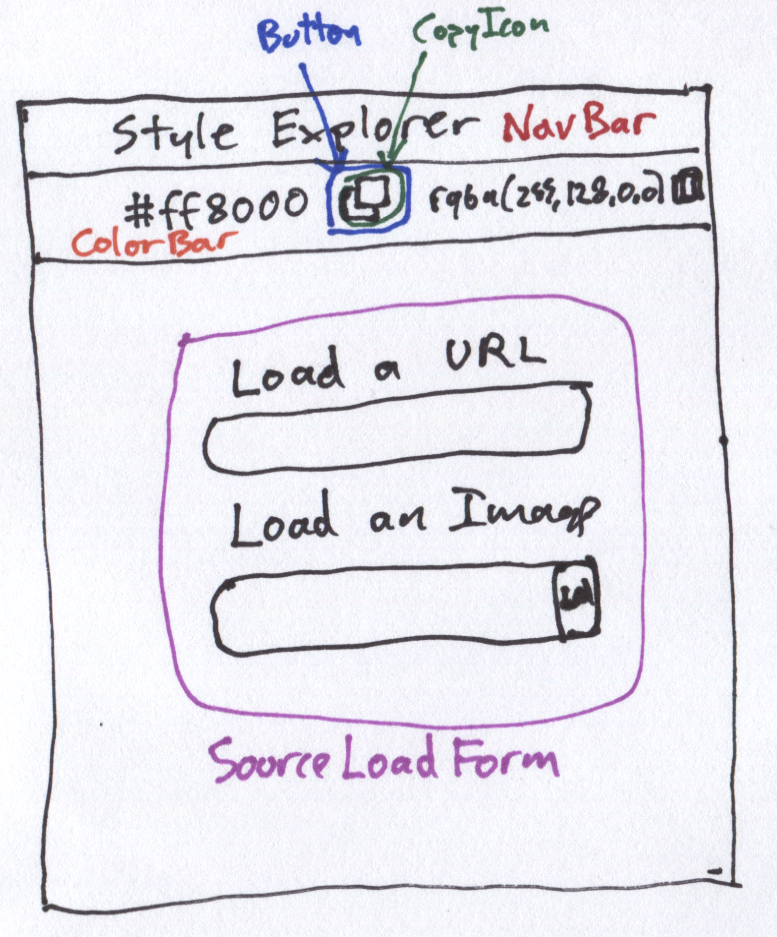 Button CopyIcon
Style Explorer NavBar
#ff8000 rgba(255,128,0,0)
ColorBar
Load a URL
Load an Image
Source Load Form